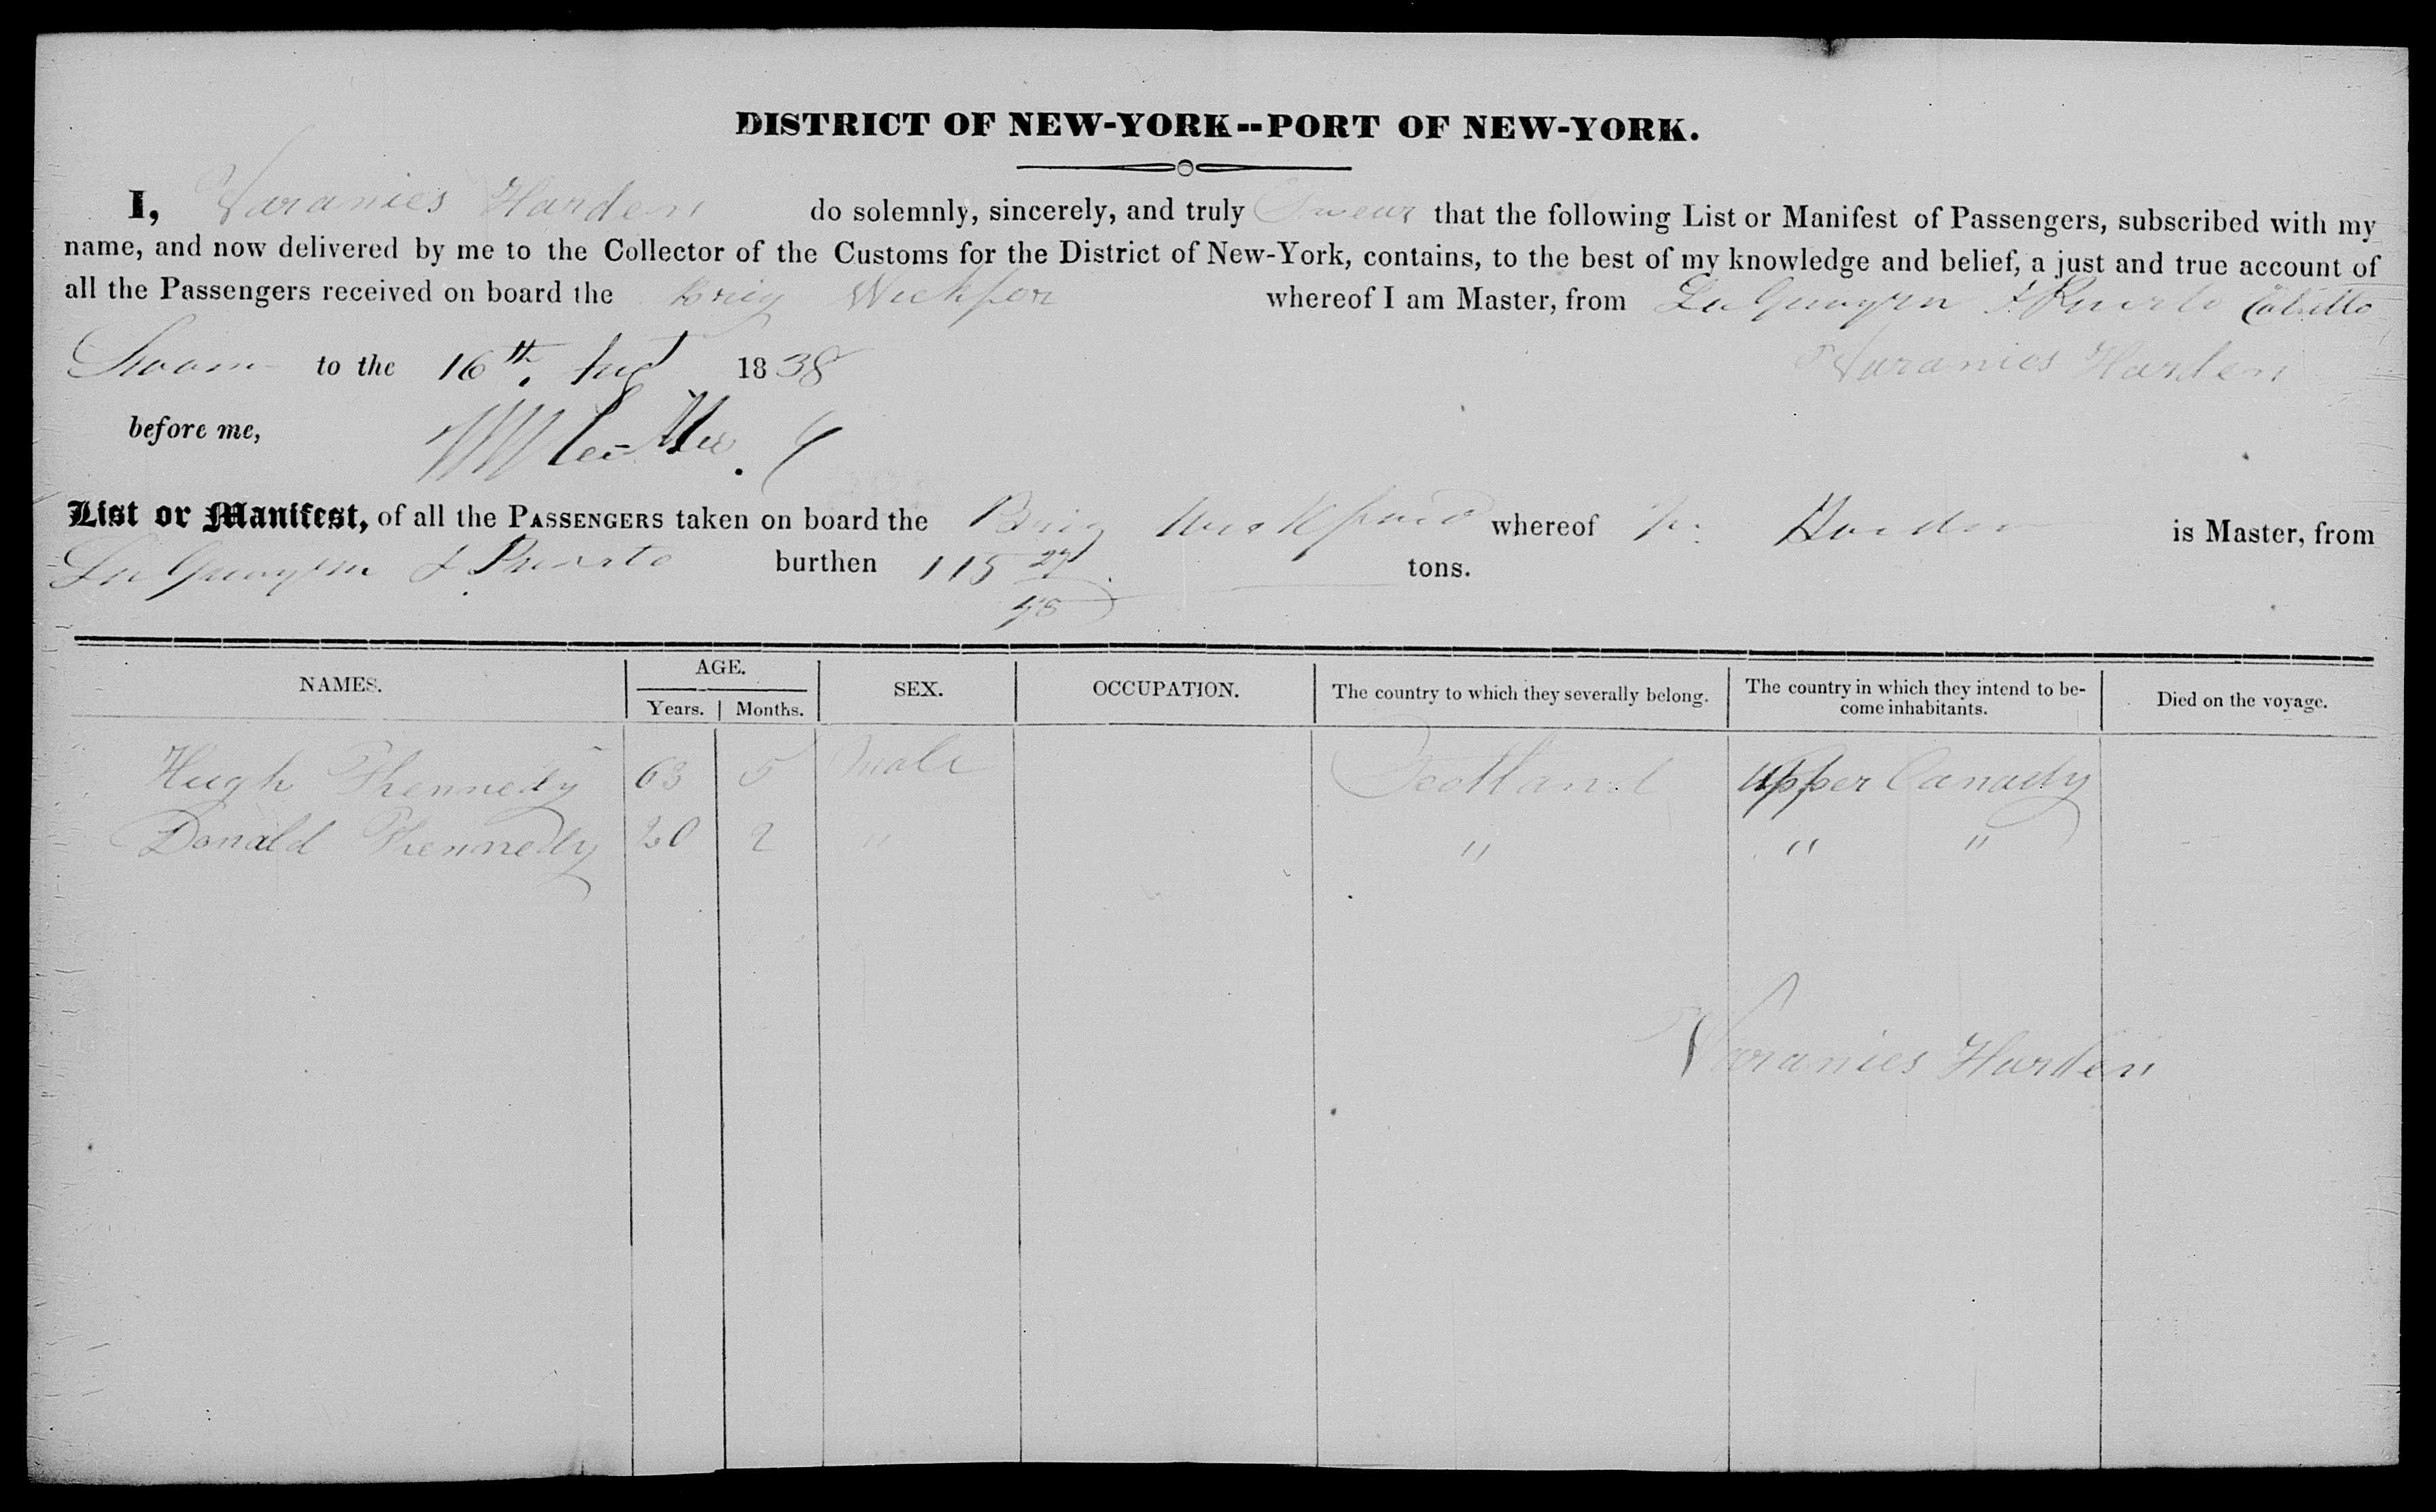 DISTRICT OF NEW-YORK--PORT OF NEW-YORK.
I, Varanies Harden do solemnly, sincerely, and truly Swear that the following List or Manifest of Passengers, subscribed with my
name, and now delivered by me to the Collector of the Customs for the District of New-York, contains, to the best of my knowledge and belief, a just and true account of
all the Passengers received on board the Brig Wickfor whereof I am Master, from LaGuayra & Puerto Cabello
Sworn to the 16th. Augt 1838 Varanies Harden
before me,
List or Manifest, of all the PASSENGERS taken on board the Brig Wickford whereof V. Harden is Master, from
LaGuayra & Puerto burthen 115 tons.
NAMES. AGE. SEX. OCCUPATION. The country to which they severally belong. The country in which they intend to be-
come inhabitants. Died on the voyage.
Years. Months.
Hugh Khennedy 63 5 Male Scotland Upper Canady
Donald Khennedy 20 2 " " " "
Varanies Harden